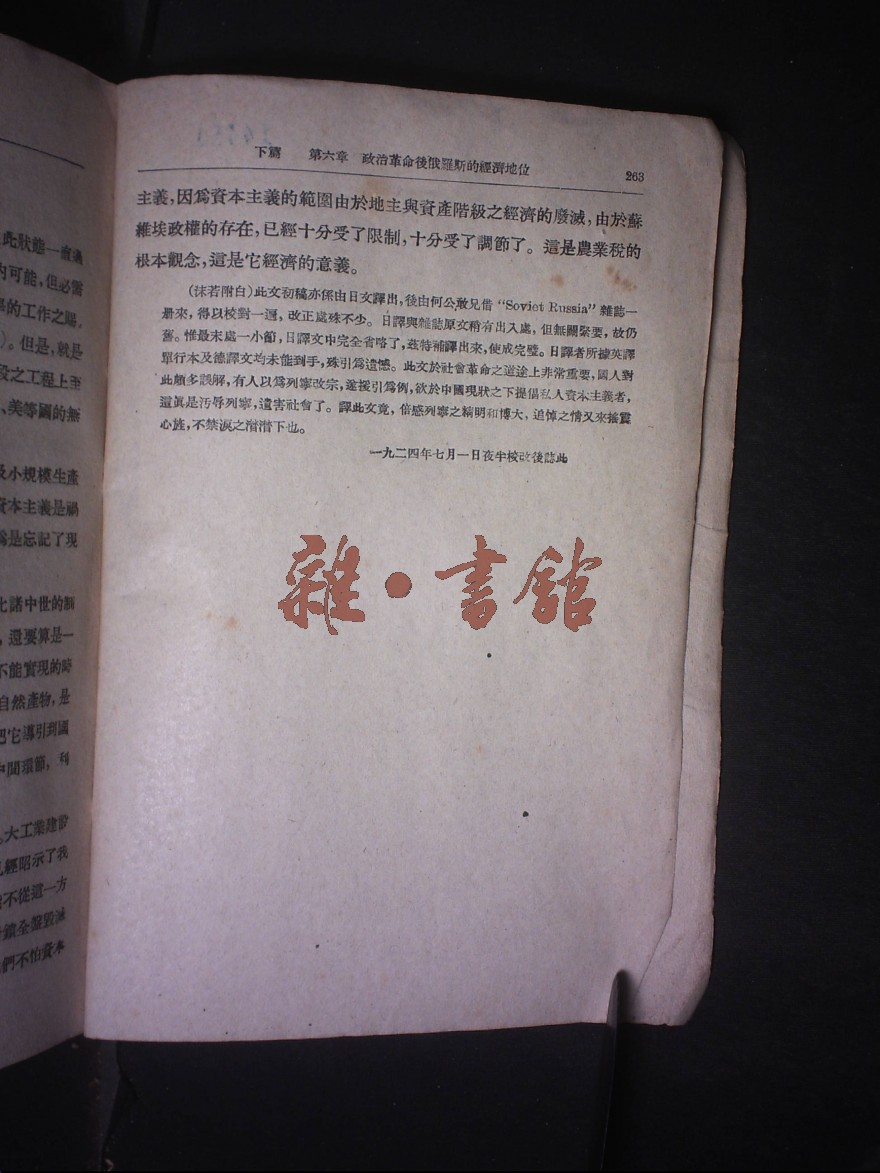 此狀態一直過
內可能，但必需
學的工作之賜。
)。但是，就是
段之工程上至
、美等國的無
及小規模生產
資本主義是禍
爲是忘記了現
比諸中世的制
，還要算是一
不能實現的時
自然產物，是
把它導引到國
中間環節，利
。大工業建設
已經昭示了我
不從這一方
鎖全盤毀滅
們不怕資本
下篇 第六章 政治革命後俄羅斯的經濟地位 263
主義，因爲資本主義的範圍由於地主與資產階級之經濟的廢滅，由於蘇
維埃政權的存在，已經十分受了限制，十分受了調節了。這是農業稅的
根本觀念，這是它經濟的意義。
(沫若附白)此文初稿亦係由日文譯出，後由何公敢兄借“Soviet Russia”雜誌一
册來，得以校對一遍，改正處殊不少。日譯與雜誌原文稍有出入處，但無關緊要，故仍
舊。惟最末處一小節，日譯文中完全省略了，茲特補譯出來，使成完璧。日譯者所據英譯
單行本及德譯文均未能到手，殊引爲遺憾。此文於社會革命之道途上非常重要，國人對
此頗多誤解，有人以爲列寧改宗，遂援引爲例，欲於中國現狀之下提倡私人資本主義者，
這眞是汚辱列寧，遺害社會了。譯此文竟，倍感列寧之精明和博大，追悼之情又來搖震
心旌，不禁淚之潸潸下也。
一九二四年七月一日夜半校改後誌此
雜·書館